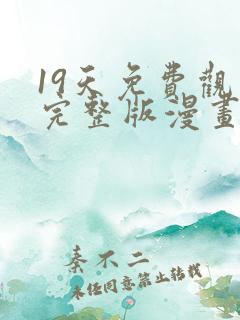 19天免費觀
完整版漫畫
秦不二
未经同意禁止转载